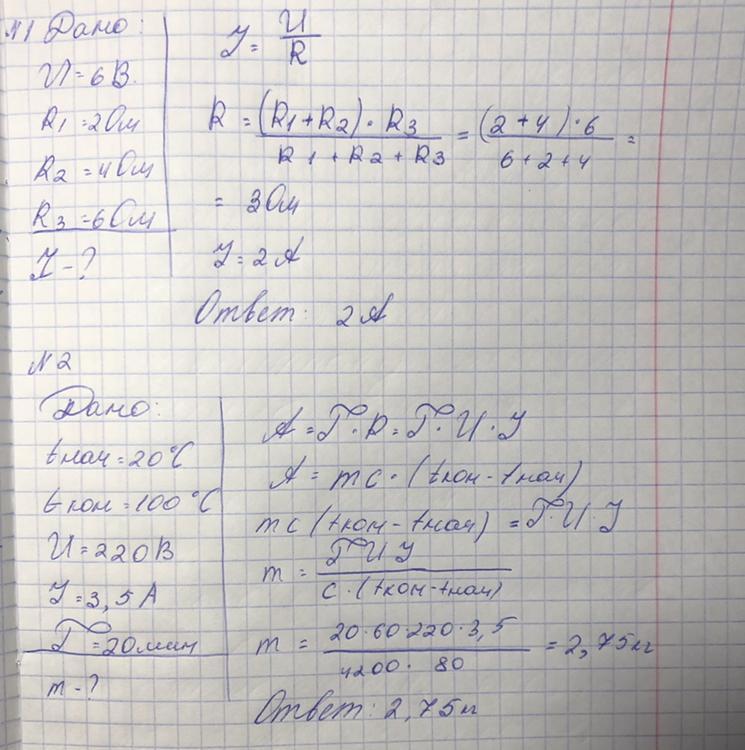 №1 Дано:
U = 6 В.
R1 = 2 Ом
R2 = 4 Ом
R3 = 6 Ом
I - ?
I = U / R
R = (R1 + R2) · R3 / R1 + R2 + R3 = (2 + 4) · 6 / 6 + 2 + 4 =
= 3 Ом
I = 2 А
Ответ: 2 А
№2
Дано:
tнач = 20°C
tкон = 100°C
U = 220 В
I = 3,5 А
T = 20 мин
m - ?
A = T · P = T · U · I
A = mc · (tкон - tнач)
mc (tкон - tнач) = T · U · I
m = T U I / c · (tкон - tнач)
m = 20 · 60 · 220 · 3,5 / 4200 · 80 = 2,75 кг
Ответ: 2,75 кг